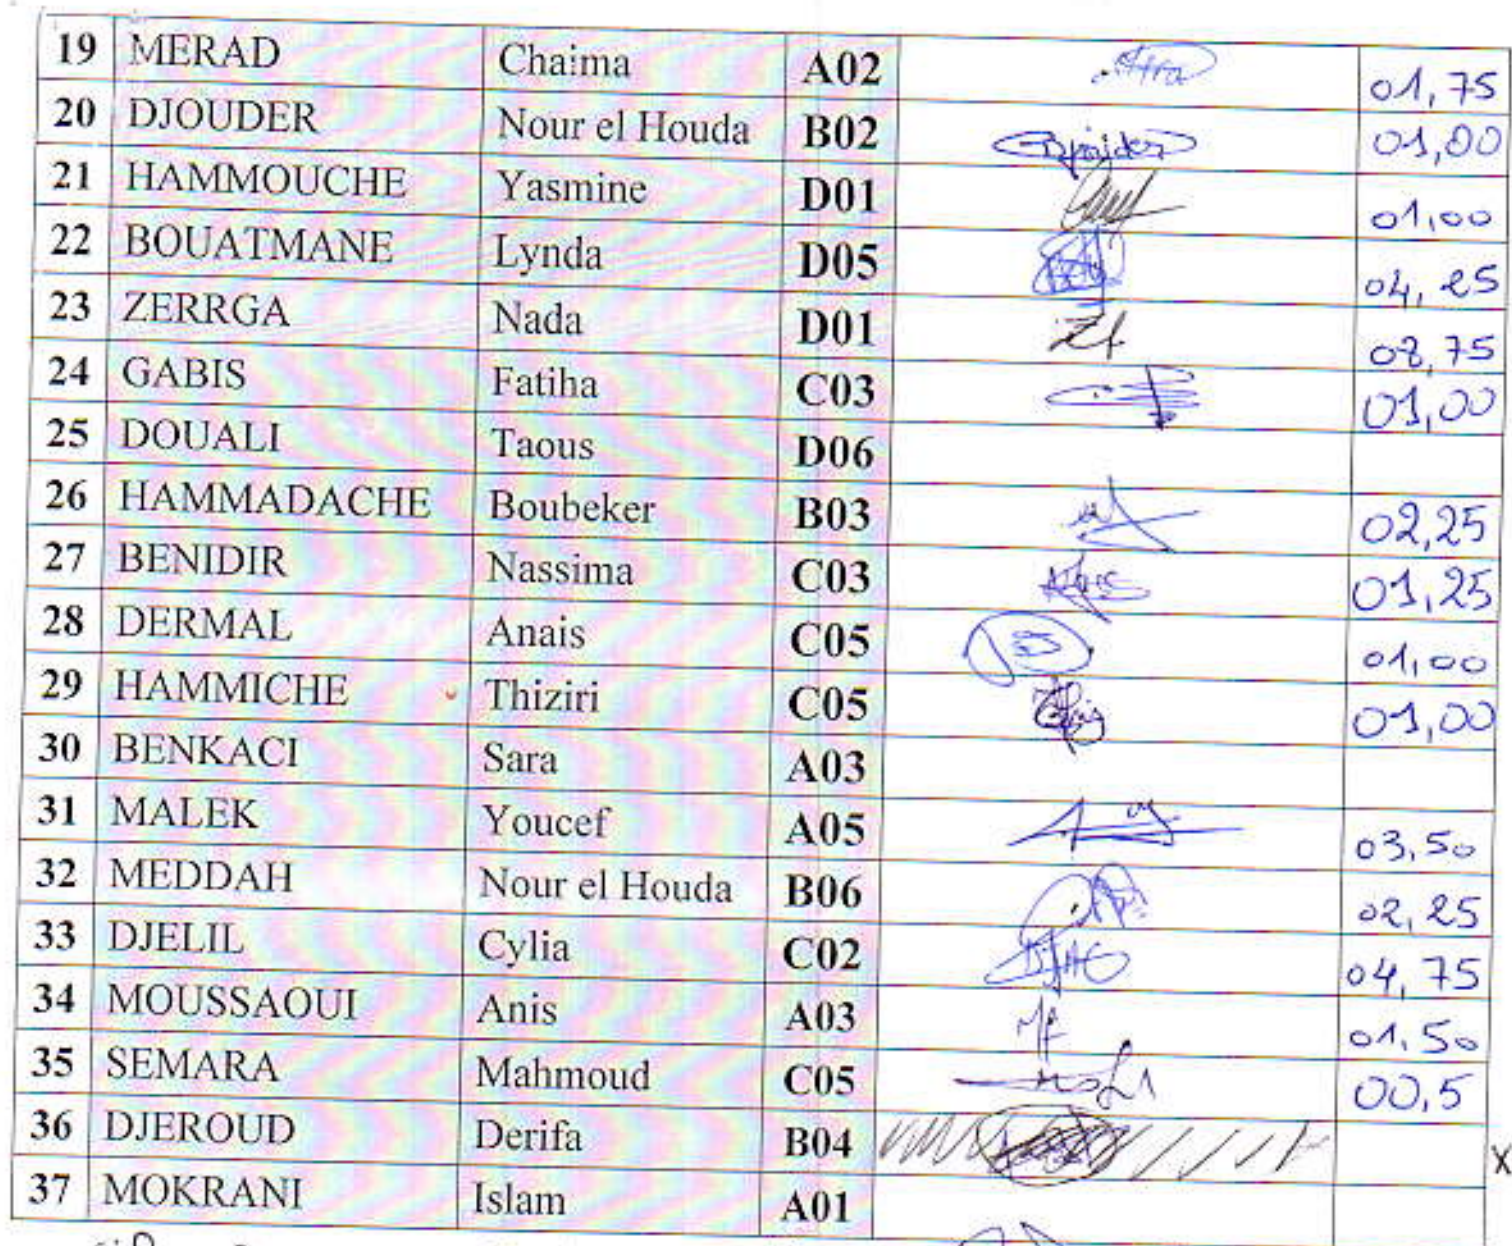 19 MERAD Chaima A02 01,75
20 DJOUDER Nour el Houda B02 01,00
21 HAMMOUCHE Yasmine D01 01,00
22 BOUATMANE Lynda D05 04,25
23 ZERRGA Nada D01 02,75
24 GABIS Fatiha C03 01,00
25 DOUALI Taous D06
26 HAMMADACHE Boubeker B03 02,25
27 BENIDIR Nassima C03 01,25
28 DERMAL Anais C05 01,00
29 HAMMICHE Thiziri C05 01,00
30 BENKACI Sara A03
31 MALEK Youcef A05 03,50
32 MEDDAH Nour el Houda B06 02,25
33 DJELIL Cylia C02 04,75
34 MOUSSAOUI Anis A03 01,50
35 SEMARA Mahmoud C05 00,5
36 DJEROUD Derifa B04 X
37 MOKRANI Islam A01